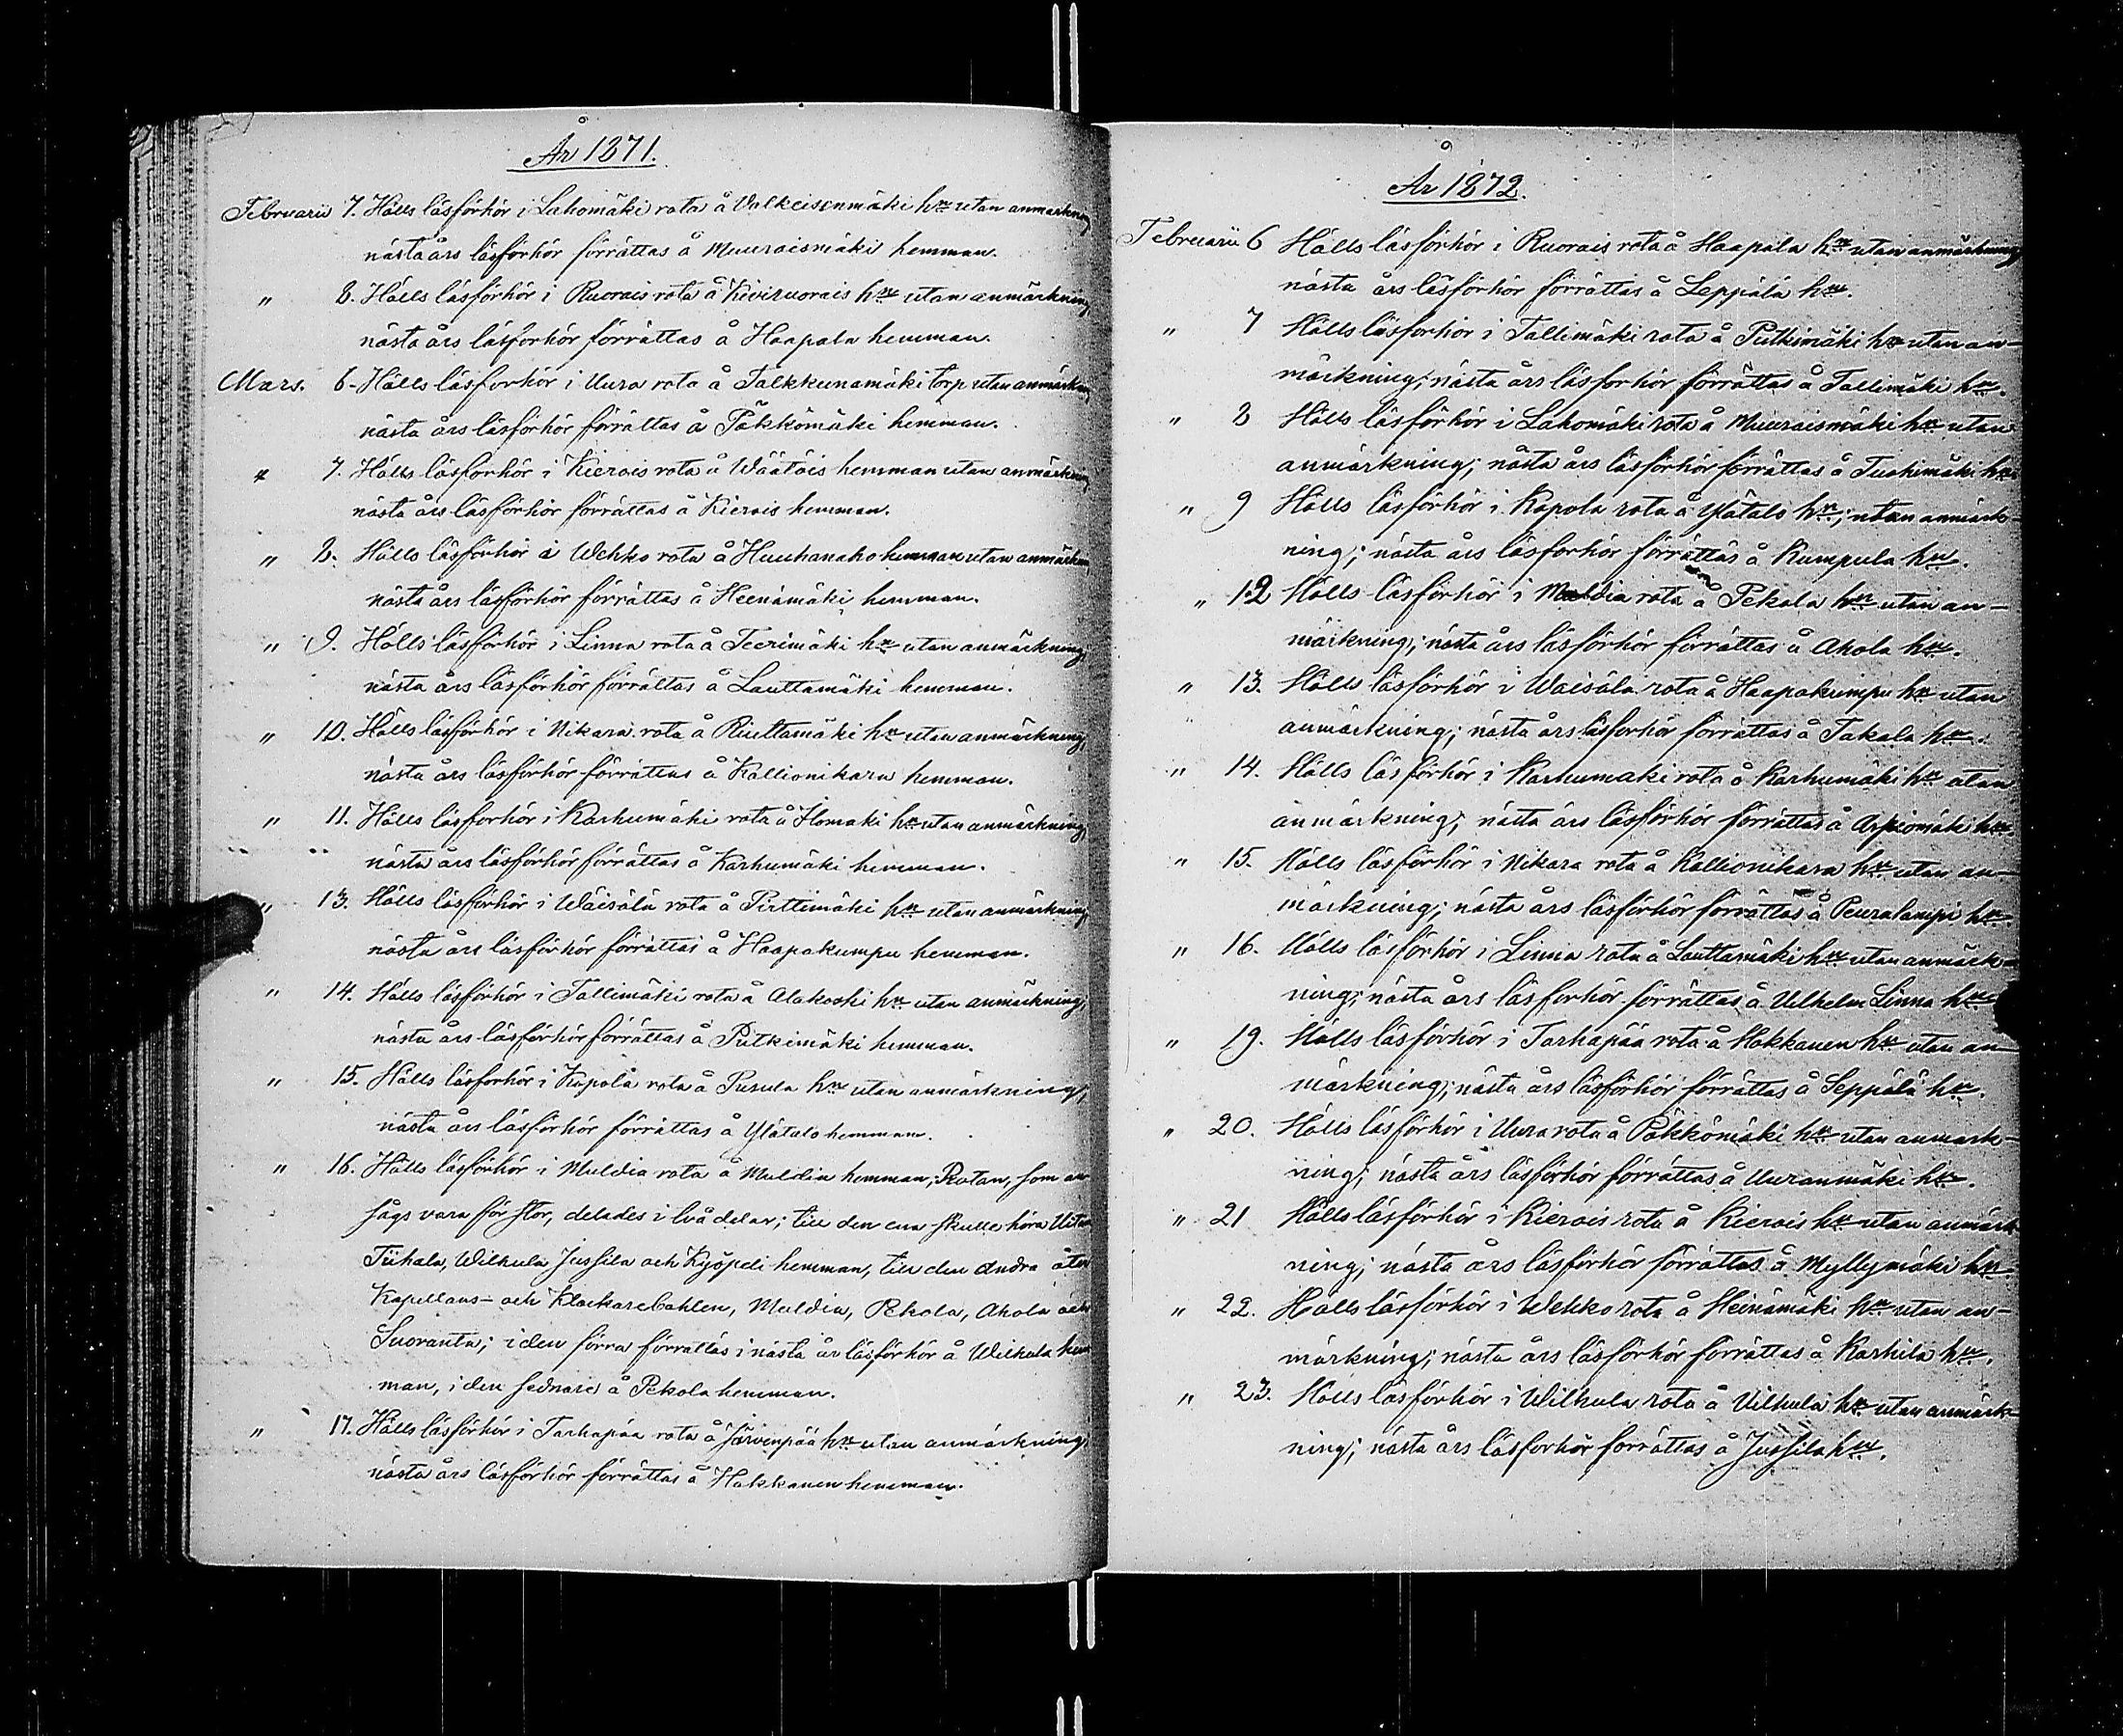 År 1871.
Februarii 7. Hölls läsförhör i Lahomäki rota å Valkeisenmäki hn utan anmärkning
nästa års läsförhör förrättas å Muuraismäki hemman.
" 8. Hölls läsförhör i Ruorais rota å Kiviruorais hn utan anmärkning
nästa års läsförhör förrättas å Haapala hemman.
Mars. 6. Hölls läsförhör i Uura rota å Talkkunamäki torp utan anmärkn
nästa års läsförhör förrättas å Pökkömäki hemman.
" 7. Hölls läsförhör i Kierois rota å Wäätäis hemman utan anmärkn
nästa års läsförhör förrättas å Kierois hemman.
" 8. Hölls läsförhör i Wehko rota å Huuhanaho hemman utan anmärkn
nästa års läsförhör förrättas å Heenämäki hemman.
" 9. Hölls läsförhör i Linna rota å Teerimäki hn utan anmärkning,
nästa års läsförhör förrättas å Lauttamäki hemman.
" 10. Hölls läsförhör i Nikara rota å Riuttamäki hn utan anmärkning,
nästa års läsförhör förrättas å Kallionikara hemman.
" 11. Hölls läsförhör i Karhumäki rota å Ilomäki hn utan anmärkning,
nästa års läsförhör förrättas å Karhumäki hemman.
" 13. Hölls läsförhör i Wäisälä rota å Pirttimäki hn utan anmärkning
nästa års läsförhör förrättas å Haapakumpu hemman.
" 14. Hölls läsförhör i Tallimäki rota å Alakoski hn utan anmärkning,
nästa års läsförhör förrättas å Putkimäki hemman.
" 15. Hölls läsförhör i Kapola rota å Pusula hn utan anmärkning,
nästa års läsförhör förrättas å Ylätalo hemman.
" 16. Hölls läsförhör i Muldia rota å Muldia hemman; Rotan, som an
sågs vara för stor, delades i två delar; till den ena skulle höra
Tiihala, Wilhula Jussila och Kyöpeli hemman, till den andra åter
Kapellans- och Klockarebohlen, Muldia, Pekola, Ahola och
Suoranta; i den förra förrättas i nästa år läsförhör å Wilhula hem
man, i den sednare å Pekola hemman.
" 17. Hölls läsförhör i Tarhapää rota å Järvenpää hn utan anmärkning,
nästa års läsförhör förrättas å Hokkanen hemman.
År 1872.
Februarii 6 Hölls läsförhör i Ruorais rota å Haapala hn utan anmärkning
nästa års läsförhör förrättas å Leppälä hn.
" 7 Hölls läsförhör i Tallimäki rota å Putkimäki hn utan an-
märkning; nästa års läsförhör förrättas å Tallimäki hn.
" 8 Hölls läsförhör i Lahomäki rota å Muuraismäki hn utan
anmärkning; nästa års läsförhör förrättas å Tuohimäki hn
" 9 Hölls läsförhör i Kapola rota å Ylätalo hn; utan anmärk-
ning; nästa års läsförhör förrättas å Kumpula hn.
" 12 Hölls läsförhör i Muldia rota å Pekola hn utan an-
märkning; nästa års läsförhör förrättas å Ahola hn.
" 13. Hölls läsförhör i Waisälä rota å Haapakumpu hn utan
anmärkning; nästa års läsförhör förrättas å Takala hn.
" 14. Hölls läsförhör i Karhumäki rota å Karhumäki hn utan
anmärkning; nästa års läsförhör förrättas å Arpiomäki hn
" 15. Hölls läsförhör i Nikara rota å Kallionikara hn utan an-
märkning; nästa års läsförhör förrättas å Peuralampi hn.
" 16. Hölls läsförhör i Linna rota å Lauttamäki hn utan anmärk-
ning; nästa års läsförhör förrättas å Vilhelm Linna hn
" 19. Hölls läsförhör i Tarhapää rota å Hokkanen hn utan an-
märkning; nästa års läsförhör förrättas å Seppälä hn.
" 20. Hölls läsförhör i Uura rota å Pökkömäki hn utan anmärk-
ning; nästa års läsförhör förrättas å Uuranmäki hn.
" 21 Hölls läsförhör i Kierois rota å Kierois hn utan anmärk
ning; nästa års läsförhör förrättas å Myllymäki hn.
" 22. Hölls läsförhör i Wehko rota å Heinämäki hn utan an-
märkning; nästa års läsförhör förrättas å Karhila hn.
" 23. Hölls läsförhör i Wilhula rota å Vilhula hn utan anmärk-
ning; nästa års läsförhör förrättas å Jussila hn.